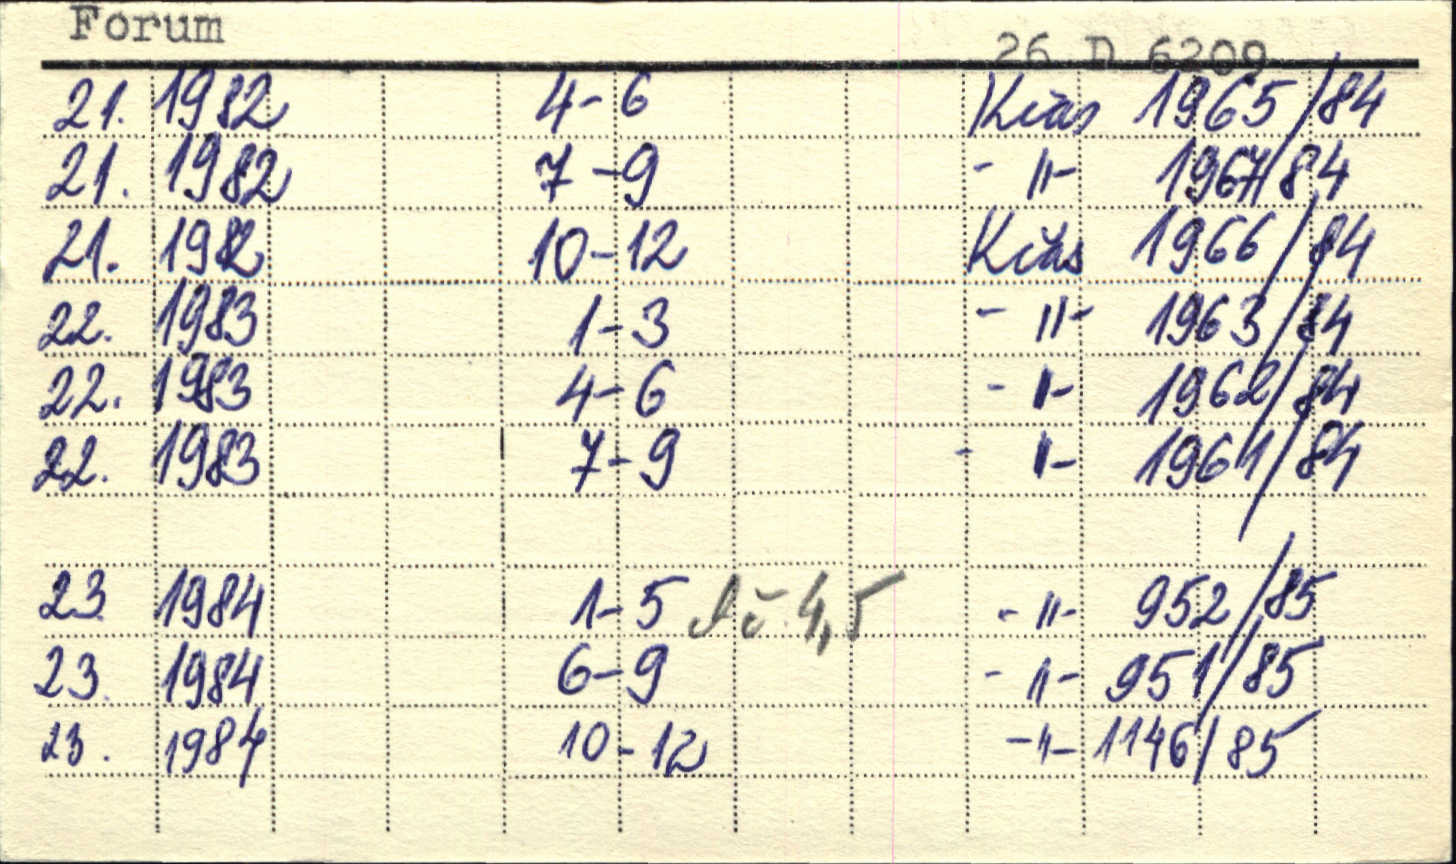 Forum
26 D 6209
21. 1982 4-6 Kčás 1965/84
21. 1982 7-9 -"- 1967/84
21. 1982 10-12 Kčás 1966/84
22. 1983 1-3 -"- 1963/84
22. 1983 4-6 -"- 1962/84
22. 1983 7-9 -"- 1961/84
23. 1984 1-5 č. 4,5 -"- 952/85
23. 1984 6-9 -"- 951/85
23. 1984 10-12 -"- 1146/85